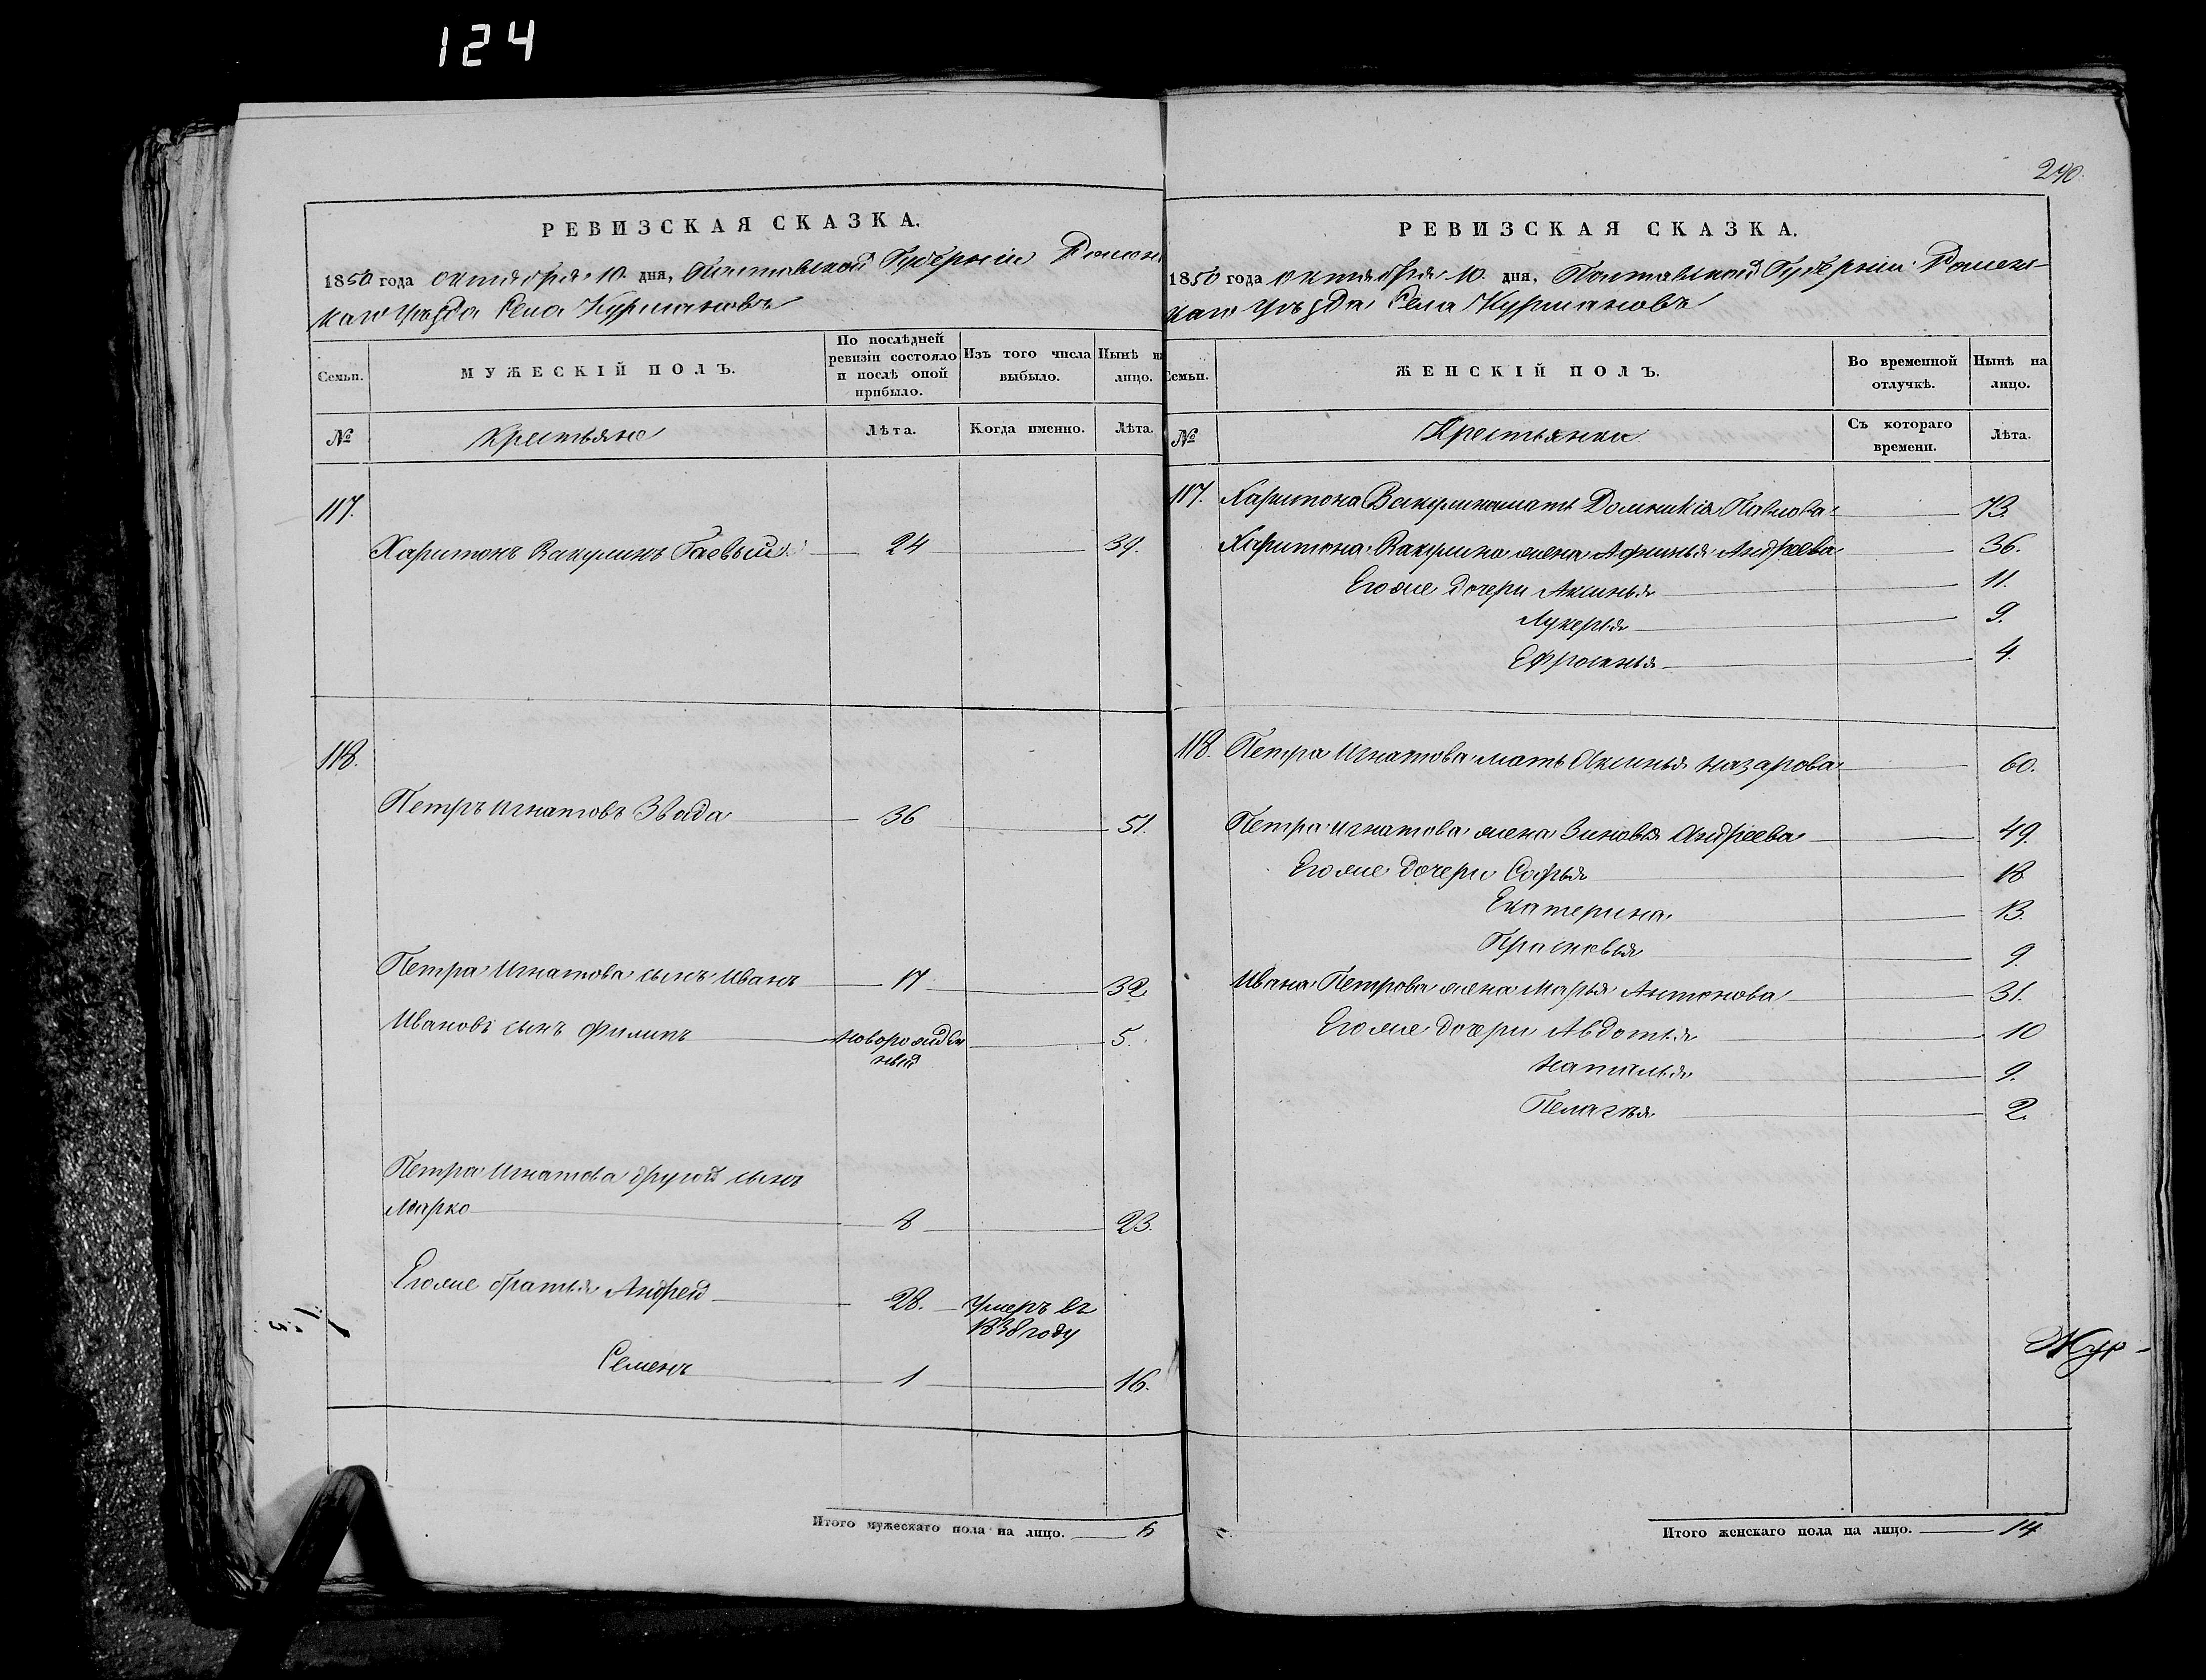 124
РЕВИЗСКАЯ СКАЗКА.
1850 года октября 10 дня, Полтавской Губерніи Ромен
скаго Уѣзда Села Курмановъ
Семьи.
МУЖЕСКІЙ ПОЛЪ.
По послѣдней
ревизіи состояло
и послѣ оной
прибыло.
Изъ того числа
выбыло.
Нынѣ на
лицо.
№
Крестьяне
Лѣта.
Когда именно.
Лѣта.
117.
Харитонъ Вакулинъ Гаевый 24 39.
118.
Петръ Игнатовъ Звада 36 51.
Петра Игнатова сынъ Иванъ 17 32
Ивановъ сынъ Филипъ новорожден 5.
ный
Петра Игнатова другой сынъ
Марко 8 23.
Егоже братья Андрей 28. Умеръ въ
1838 году
Семенъ 1 16.
Итого мужескаго пола на лицо. 6
240.
РЕВИЗСКАЯ СКАЗКА.
1850 года октября 10 дня, Полтавской Губерніи Ромен-
скаго Уѣзда Села Курмановъ
Семьи.
ЖЕНСКІЙ ПОЛЪ.
Во временной
отлучкѣ.
Нынѣ на
лицо.
№
Крестьянки
Съ котораго
времени.
Лѣта.
117. Харитона Вакулина мать Домникія Павлова 73
Харитона Вакулина жена Афимья Андреева 36.
Егоже дочери Аксинья 11.
Лукерья 9.
Ефросинья 4.
118. Петра Игнатова мать Аксинья Назарова 60.
Петра Игнатова жена Зиновья Андреева 49.
Егоже дочери Софья 18
Екатерина 13.
Прасковья 9.
Ивана Петрова жена Марья Антонова 31.
Егоже дочери Авдотья 10
Наталья 9.
Пелагея 2.
Итого женскаго пола на лицо. 14